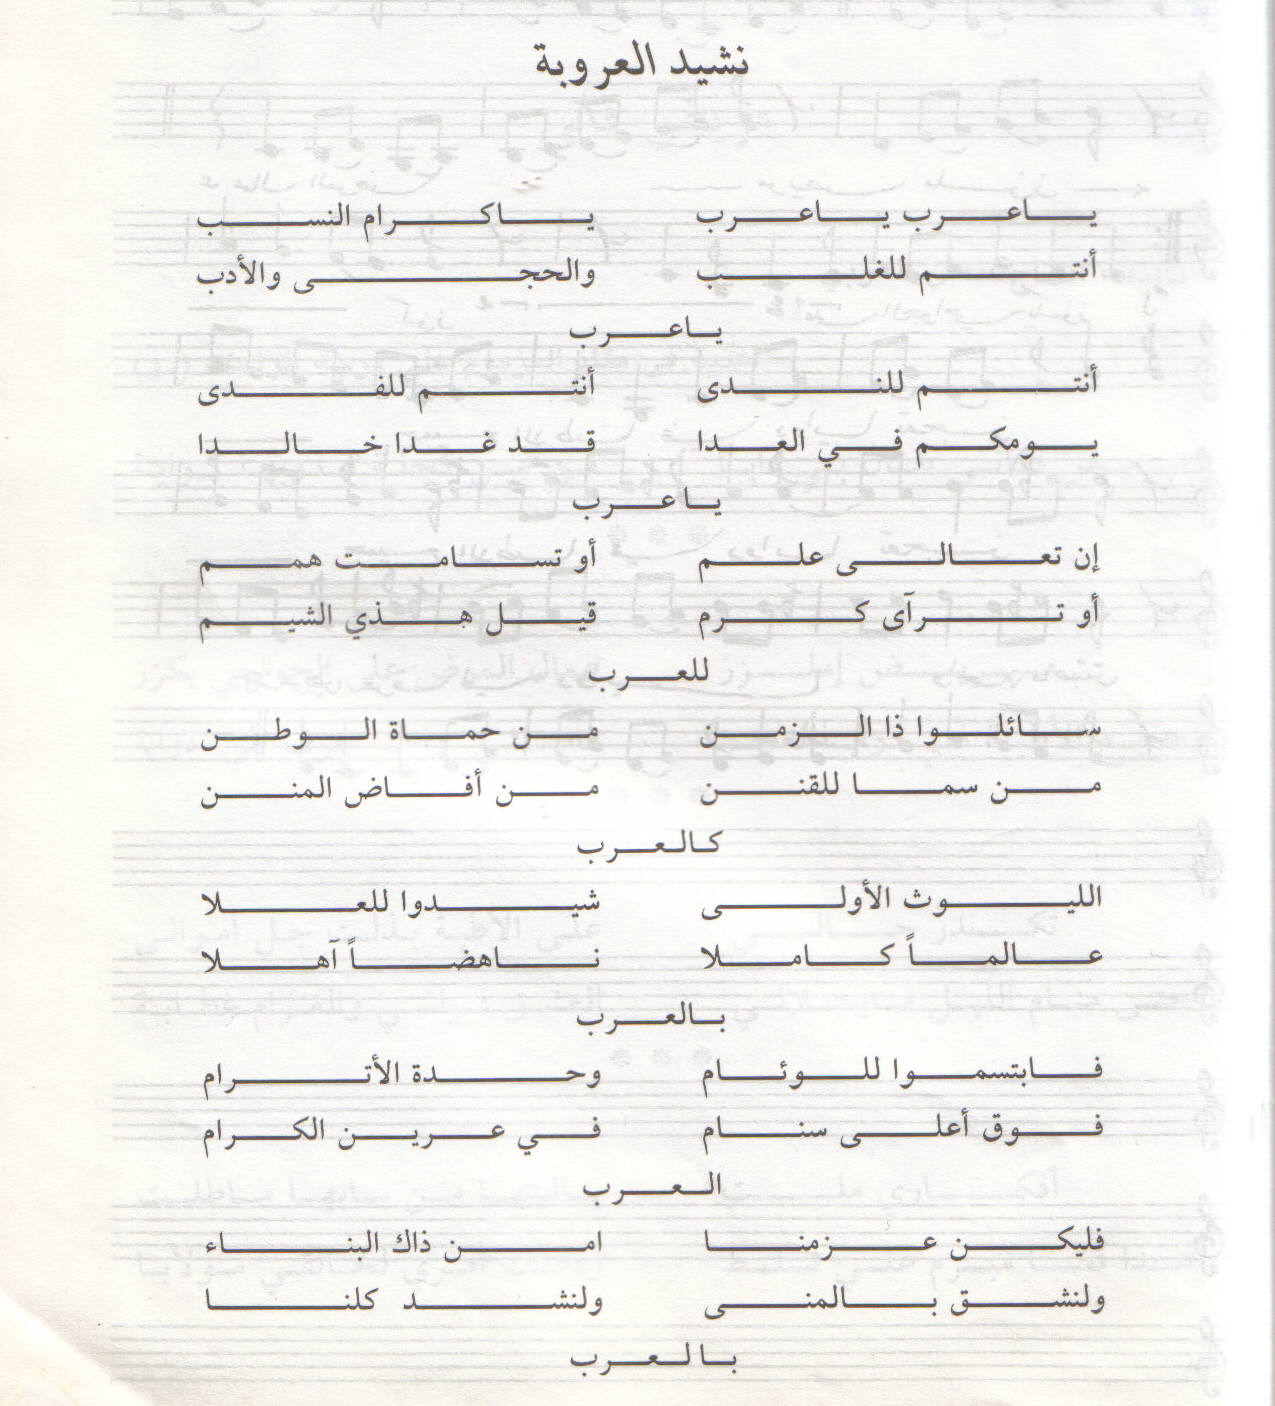 نشيد العروبة
يا عرب يا عرب يا كرام النسب
أنتم للغلب والحجى والأدب
يا عرب
أنتم للندى أنتم للفدى
يومكم في العدا قد غدا خالدا
يا عرب
إن تعالى علم أو تسامت همم
أو ترآى كرم قيل هذي الشيم
للعرب
سائلوا ذا الزمن من حماة الوطن
من سما للقنن من أفاض المنن
كالعرب
الليوث الأولى شيدوا للعلا
عالماً كاملا ناهضاً آهلا
بالعرب
فابتسموا للوئام وحدة الأترام
فوق أعلى سنام في عرين الكرام
العرب
فليكن عزمنا امن ذاك البناء
ولنشق بالمنى ولنشد كلنا
بالعرب